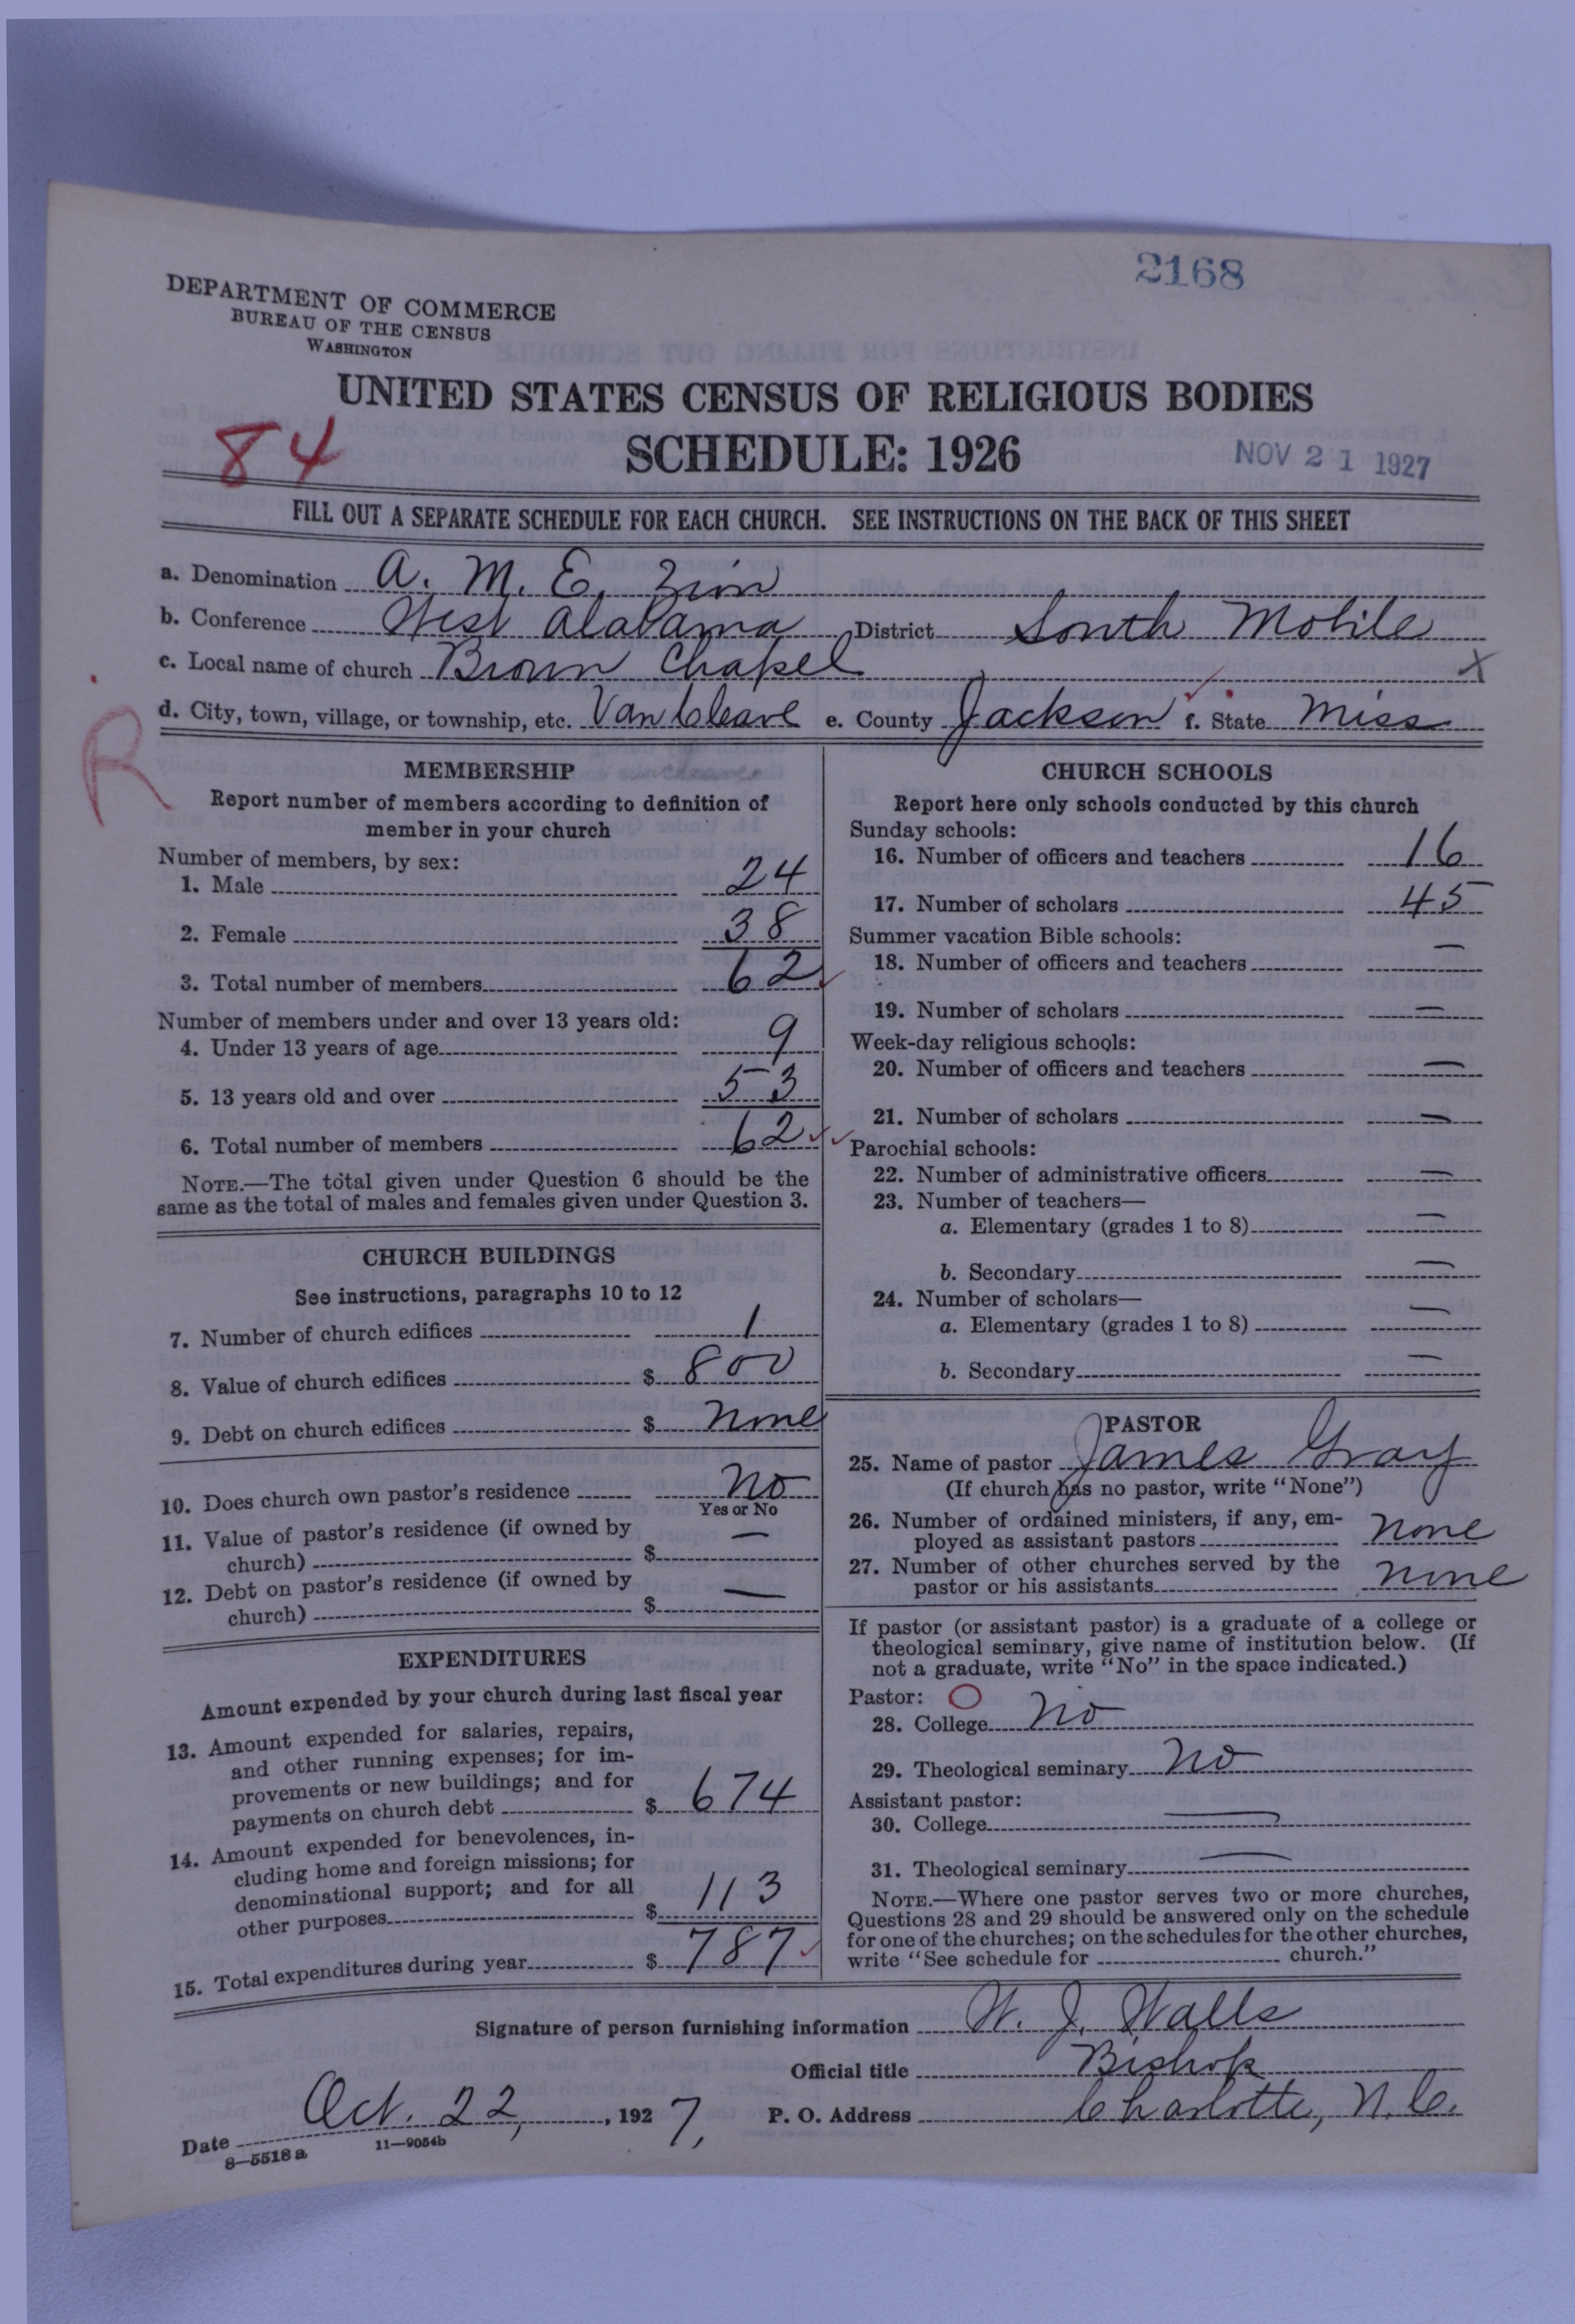 2168
DEPARTMENT OF COMMERCE
BUREAU OF THE CENSUS
WASHINGTON
UNITED STATES CENSUS OF RELIGIOUS BODIES
84
SCHEDULE: 1926
NOV 21 1927
FILL OUT A SEPARATE SCHEDULE FOR EACH CHURCH. SEE INSTRUCTIONS ON THE BACK OF THIS SHEET
a. Denomination A. M. E. Zion
b. Conference West Alabama District South Mobile
c. Local name of church Brown Chapel X
d. City, town, village, or township, etc. Van Cleave e. County Jackson f. State Miss
R
MEMBERSHIP
Report number of members according to definition of
member in your church
Number of members, by sex:
1. Male 24
2. Female 38
3. Total number of members 62
Number of members under and over 13 years old:
4. Under 13 years of age 9
5. 13 years old and over 53
6. Total number of members 62
NOTE.—The total given under Question 6 should be the
same as the total of males and females given under Question 3.
CHURCH BUILDINGS
See instructions, paragraphs 10 to 12
7. Number of church edifices 1
8. Value of church edifices $ 800
9. Debt on church edifices $ None
10. Does church own pastor's residence No
Yes or No
11. Value of pastor's residence (if owned by
church) $ —
12. Debt on pastor's residence (if owned by
church) $ —
EXPENDITURES
Amount expended by your church during last fiscal year
13. Amount expended for salaries, repairs,
and other running expenses; for im-
provements or new buildings; and for
payments on church debt $ 674
14. Amount expended for benevolences, in-
cluding home and foreign missions; for
denominational support; and for all
other purposes $ 113
15. Total expenditures during year $ 787
CHURCH SCHOOLS
Report here only schools conducted by this church
Sunday schools:
16. Number of officers and teachers 16
17. Number of scholars 45
Summer vacation Bible schools:
18. Number of officers and teachers —
19. Number of scholars —
Week-day religious schools:
20. Number of officers and teachers —
21. Number of scholars —
Parochial schools:
22. Number of administrative officers —
23. Number of teachers—
a. Elementary (grades 1 to 8) —
b. Secondary —
24. Number of scholars—
a. Elementary (grades 1 to 8) —
b. Secondary —
PASTOR
25. Name of pastor James Gray
(If church has no pastor, write "None")
26. Number of ordained ministers, if any, em-
ployed as assistant pastors None
27. Number of other churches served by the
pastor or his assistants None
If pastor (or assistant pastor) is a graduate of a college or
theological seminary, give name of institution below. (If
not a graduate, write "No" in the space indicated.)
Pastor: O
28. College No
29. Theological seminary No
Assistant pastor:
30. College —
31. Theological seminary —
NOTE.—Where one pastor serves two or more churches,
Questions 28 and 29 should be answered only on the schedule
for one of the churches; on the schedules for the other churches,
write "See schedule for church."
Signature of person furnishing information W. J. Walls
Official title Bishop
Date Oct. 22, 1927, P. O. Address Charlotte, N. C.
8—5518 a 11—9054b